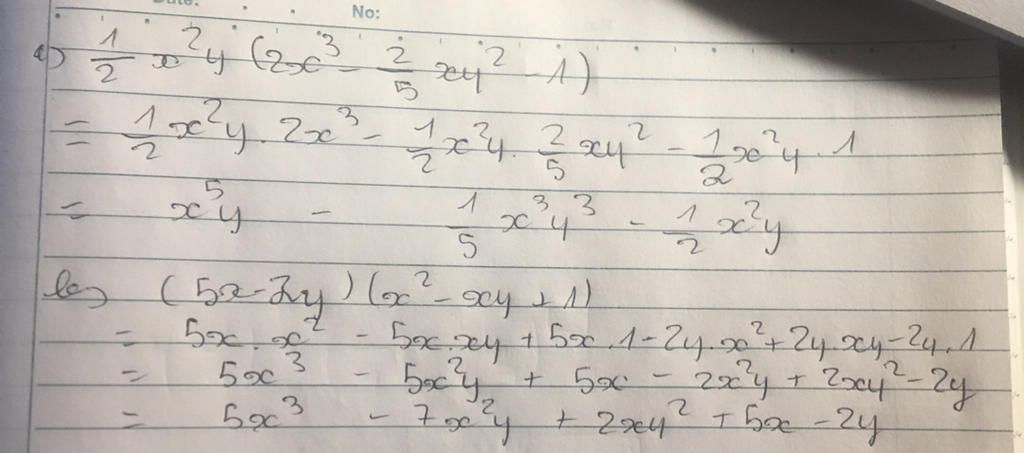 No:
a) 1/2 x²y (2x³ - 2/5 xy² - 1)
= 1/2 x²y . 2x³ - 1/2 x²y . 2/5 xy² - 1/2 x²y . 1
= x⁵y - 1/5 x³y³ - 1/2 x²y
b) (5x - 2y)(x² - xy + 1)
= 5x.x² - 5x.xy + 5x.1 - 2y.x² + 2y.xy - 2y.1
= 5x³ - 5x²y + 5x - 2x²y + 2xy² - 2y
= 5x³ - 7x²y + 2xy² + 5x - 2y